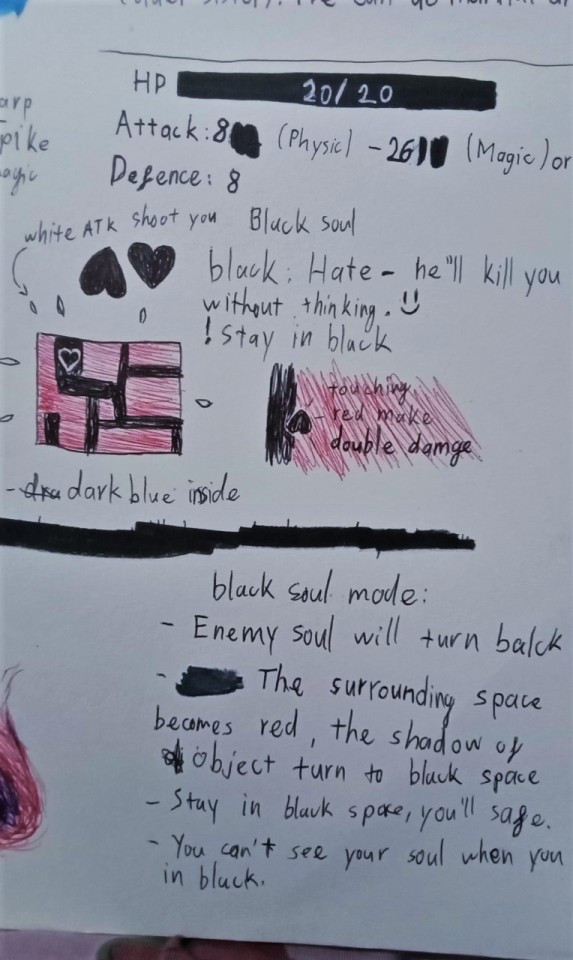 HP 20/20
arp
pike
agic
Attack: 8 (Physic) - 26 (Magic) or
Defence: 8
white ATK shoot you
Black soul
black: Hate - he"ll kill you
without thinking. :)
! Stay in black
touching
red make
double damge
- dark blue inside
black soul mode:
- Enemy soul will turn balck
- The surrounding space
becomes red, the shadow of
object turn to black space
- Stay in black space, you'll safe.
- You can't see your soul when you
in black.